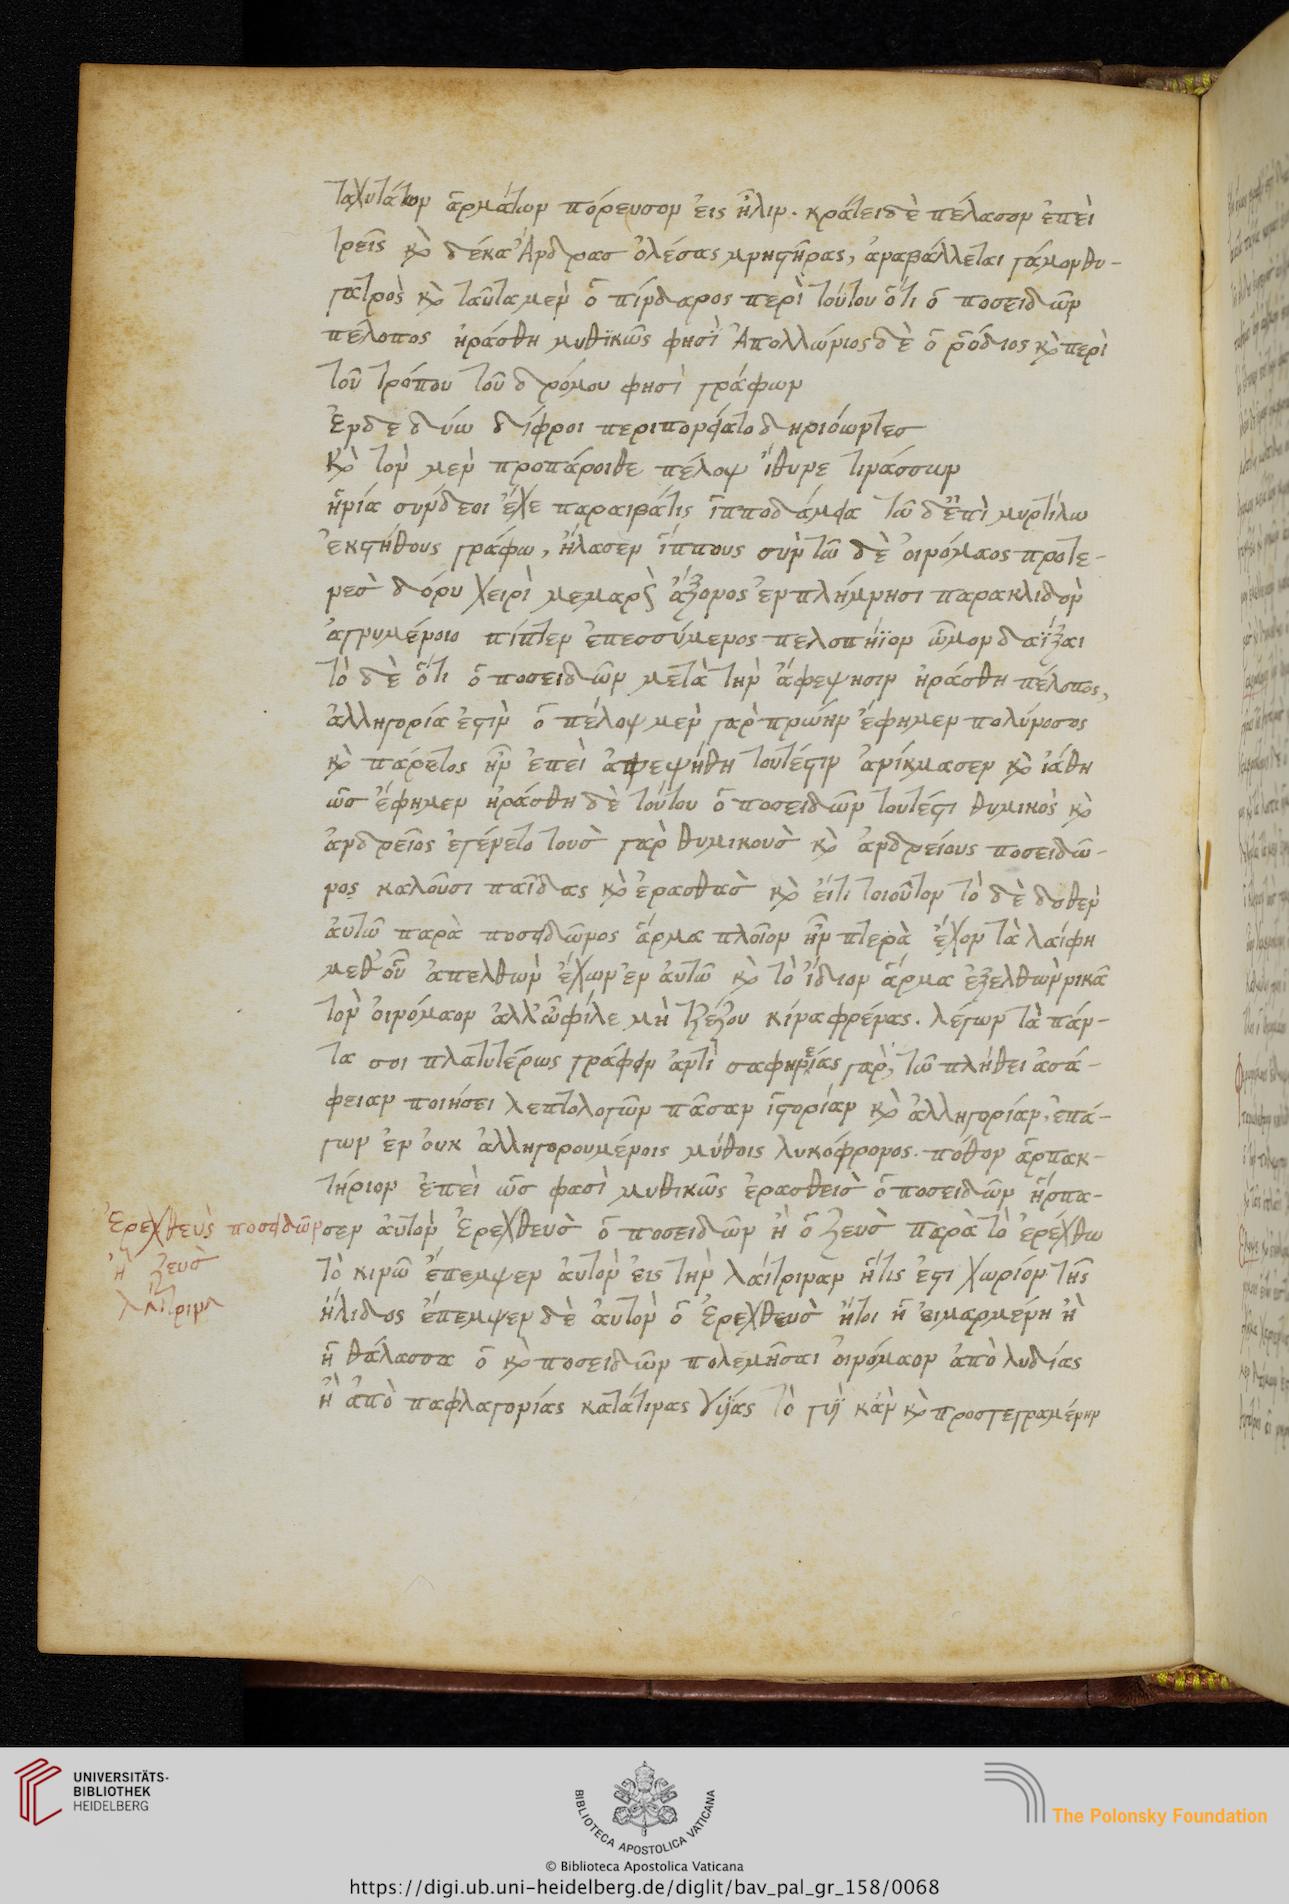 ταχυτάτων ἁρμάτων πόρευσον εἰς ἦλιν. κράτει δὲ πέλασον ἐπεὶ
τρεῖς καὶ δέκα Ἄνδρας ὀλέσας μνηστῆρας, ἀναβάλλεται γάμον θυ-
γατρὸς καὶ ταῦτα μὲν ὁ πίνδαρος περὶ τούτου ὅτι ὁ ποσειδῶν
πέλοπος ἠράσθη μυθϊκῶς φησὶ Ἀπολλώνιος δὲ ὁ ῥόδιος καὶ περὶ
τοῦ τρόπου τοῦ δρόμου φησὶ γράφων
Ἐν δε δύω δίφροι περιπονέατο δηριόωντες
καὶ τὸν μὲν προπάροιθε πέλοψ ἴθυνε τινάσσων
ἡνία σύν δε οι ἔχε παραιβάτις ἱπποδάμεια τῶ δ' ἐπὶ μυρτίλω
ἐκστήθους γράφω, ἤλασεν ἵππους σὺν τῶ δὲ οἰνόμαος προτε-
νὲσ δόρυ χειρὶ μεμαρπὼς ἄξονος ἐν πλήμνησι παρακλιδὸν
ἀγνυμένοιο πίπτεν ἐπεσσύμενος πελοπήϊον ὦμον δαΐξαι
τὸ δὲ ὅτι ὁ ποσειδῶν μετὰ τὴν ἀφέψησιν ἠράσθη πέλοπος,
ἀλληγορία ἐστὶν ὁ πέλοψ μὲν γὰρ πρώην ἔφημεν πολύνοσος
καὶ πάρετος ἦν ἐπεὶ ἀφεψήθη τουτέστιν ἀνίκμασεν καὶ ἰάθη
ὡς ἔφημεν ἠράσθη δὲ τούτου ὁ ποσειδῶν τουτέστι θυμικὸς καὶ
ἀνδρεῖος ἐγένετο τοὺς γὰρ θυμικοὺς καὶ ἀνδρείους ποσειδῶ-
νος καλοῦσι παῖδας καὶ ἐραστὰς καὶ εἴ τι τοιοῦτον τὸ δὲ δοθὲν
ἀυτῶ παρὰ ποσειδῶνος ἅρμα πλοῖον ἦν πτερὰ ἔχον τὰ λαίφη
μεθ' οὗ ἀπελθὼν ἔχων ἐν ἀυτῶ καὶ τὸ ἴδιον ἅρμα ἐξελθὼν νικᾶ
τὸν οἰνόμαον ἀλλ' ὦ φίλε μὴ τζέτζου κίνα φρένας. λέγων τὰ πάν-
τα σοι πλατυτέρως γράφειν ἀντὶ σαφηνείας γὰρ, τῶ πλήθει ἀσά-
φειαν ποιήσει λεπτολογῶν πᾶσαν ἱστορίαν καὶ ἀλληγορίαν, ἐπά-
γων ἐν ὀυκ ἀλληγορουμένοις μύθοις λυκόφρονος. πόθον ἁρπακ-
τήριον ἐπεὶ ὡς φασὶ μυθικῶς ἐρασθεὶς ὁ ποσειδῶν ἥρπα-
Ἐρεχθεὺς ποσειδῶν
σεν ἀυτὸν Ἐρεχθεὺς ὁ ποσειδῶν ἢ ὁ Ζεὺς παρὰ τὸ ἐρέχθω
ἢ Ζεὺς
τὸ κινῶ ἔπεμψεν ἀυτὸν εἰς τὴν λάιτριναν ἥτις ἐστι χωρίον τῆς
λαίτρινα
ἤλιδος ἔπεμψεν δὲ ἀυτὸν ὁ Ἐρεχθεὺς ἤτοι ἡ εἱμαρμένη ἢ
ἡ θάλασσα ὁ καὶ ποσειδῶν πολεμῆσαι οἰνόμαον ἀπὸ λυδίας
ἢ ἀπὸ παφλαγονίας κατά τινας γυίας τὸ γυϊ κἀν καὶ προσγεγραμένην